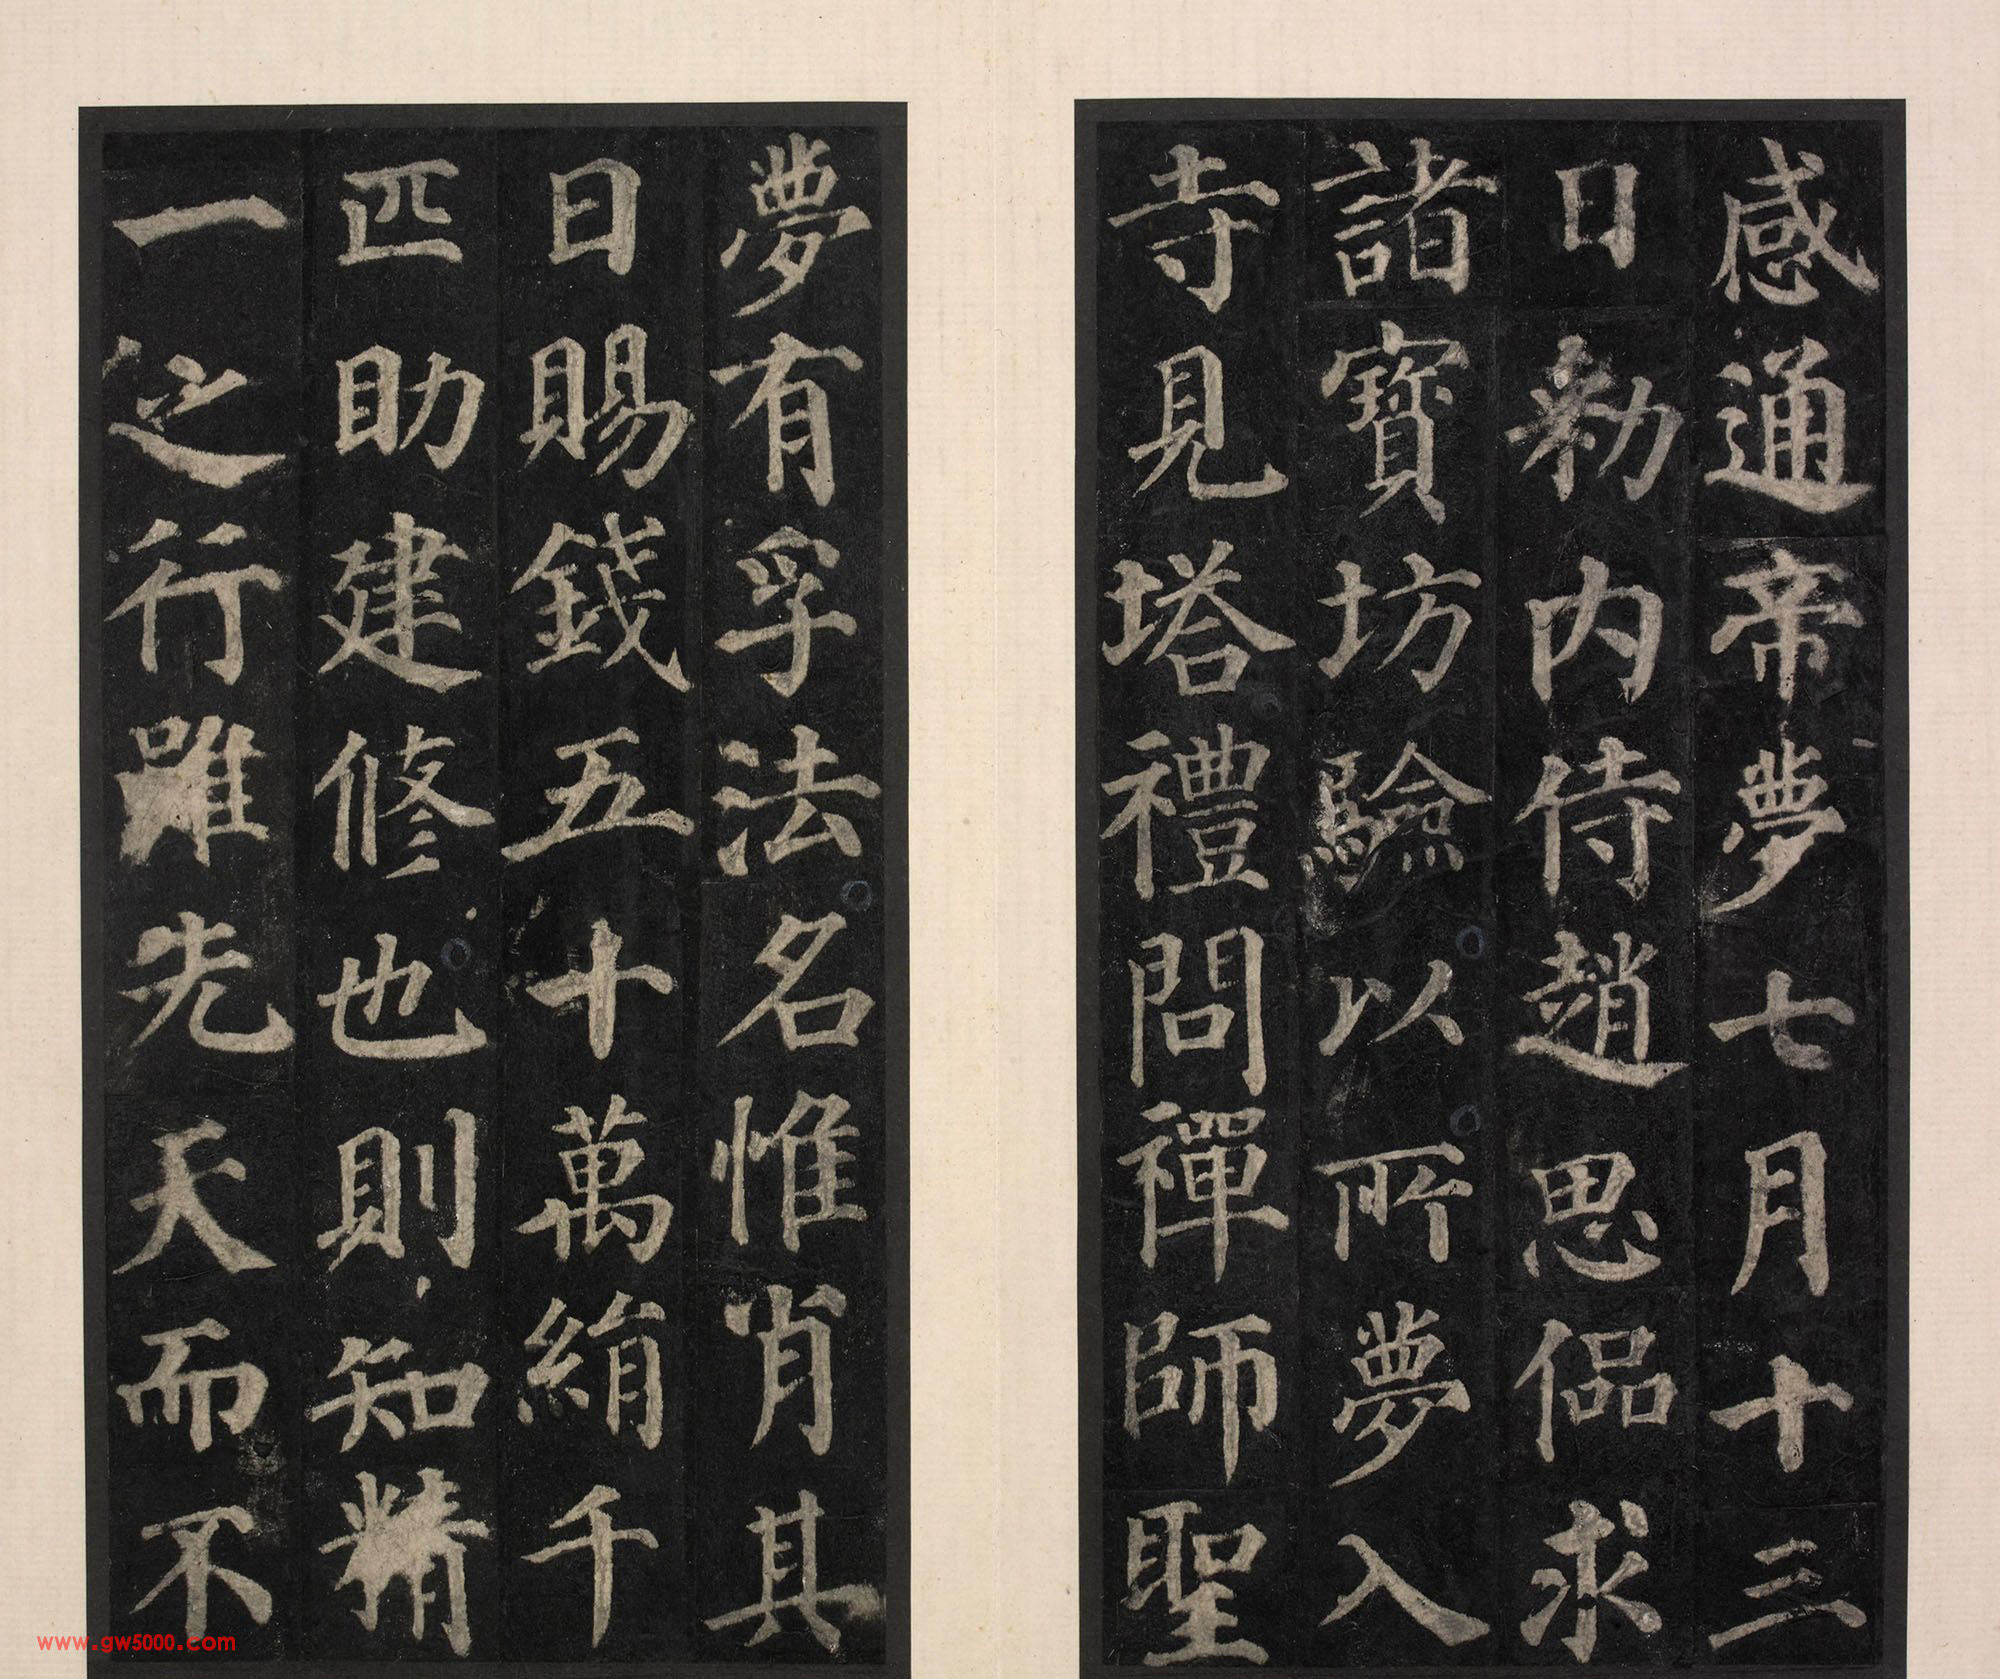 感通帝夢七月十三
日勑内侍趙思侶求
諸寶坊驗以所夢入
寺見塔禮問禪師聖
夢有孚法名惟肖其
日賜錢五十萬絹千
匹助建修也則知精
一之行雖先天而不
www.gw5000.com